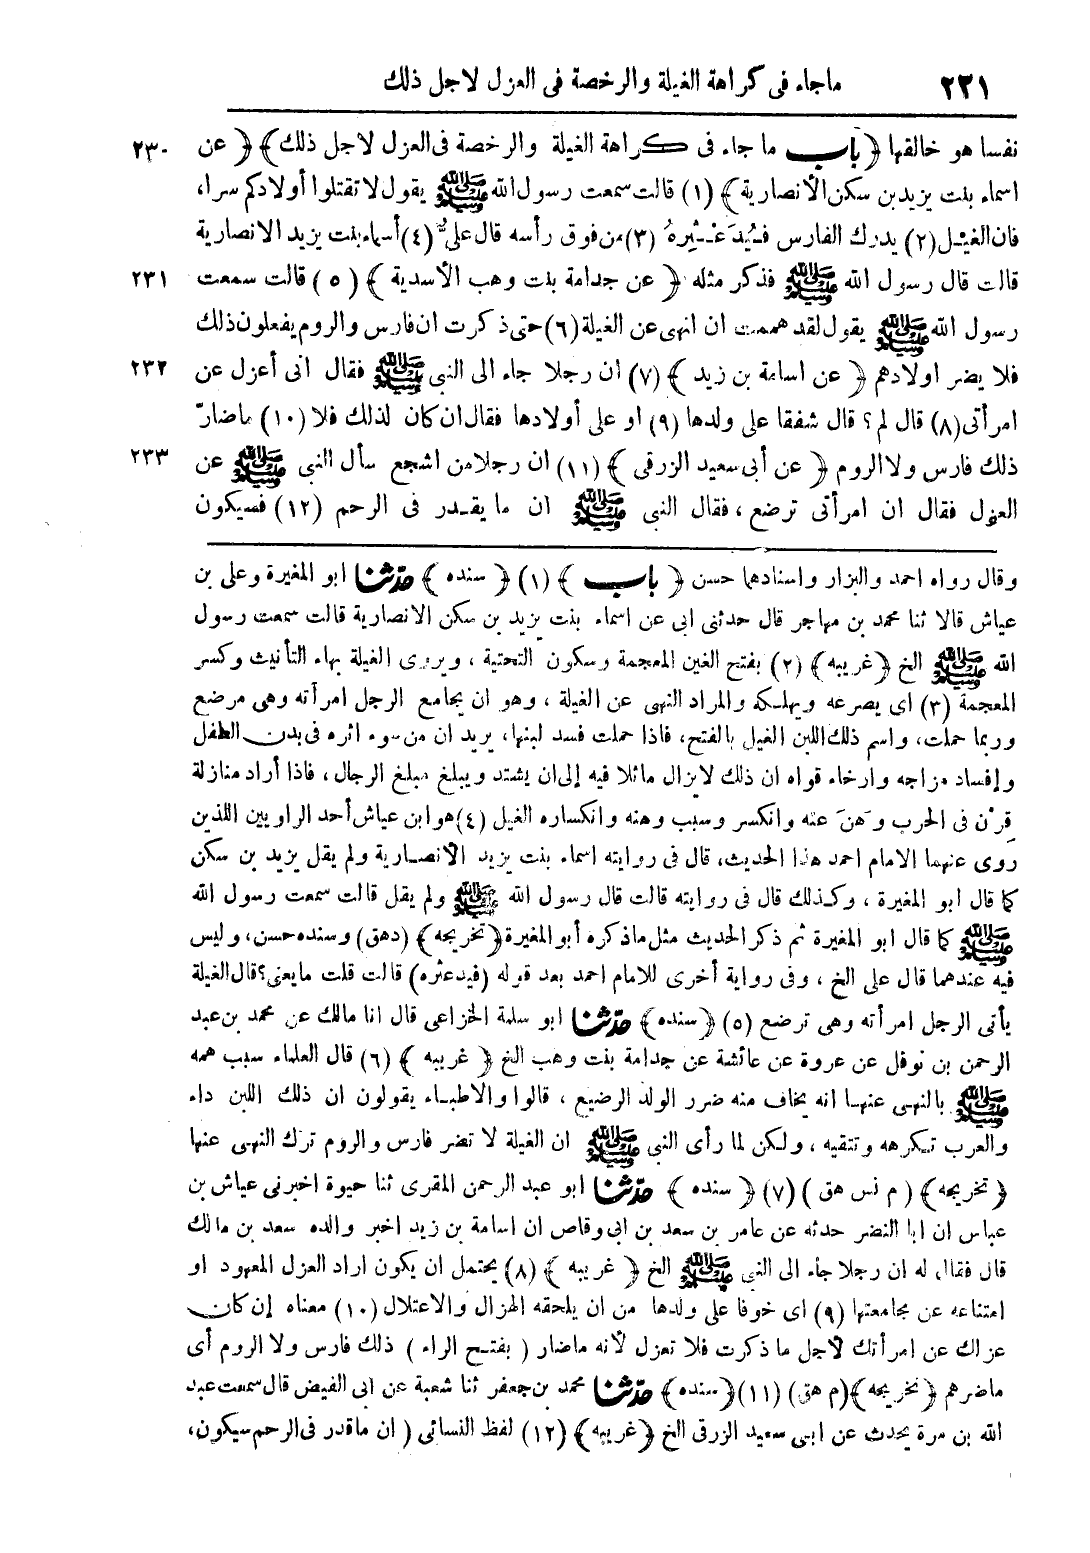 ٢٢١ ماجاء فى كراهة الغيلة والرخصة فى العزل لاجل ذلك
نفسا هو خالقها ﴿ باب ما جاء فى كراهة الغيلة والرخصة فى العزل لاجل ذلك ﴾ ﴿ عن ٢٣٠
اسماء بنت يزيد بن سكن الأنصارية ﴾ (١) قالت سمعت رسول الله ﷺ يقول لا تقتلوا أولادكم سرا،
فان الغيـل (٢) يدرك الفارس فـيُدَعْـثِره (٣) من فوق رأسه قال على (٤) أسماء بنت يزيد الانصارية
قالت قال رسول الله ﷺ فذكر مثله ﴿ عن جدامة بنت وهب الأسدية ﴾ (٥) قالت سمعت ٢٣١
رسول الله ﷺ يقول لقد هممت ان انهى عن الغيلة (٦) حتى ذكرت ان فارس والروم يفعلون ذلك
فلا يضر اولادهم ﴿ عن اسامة بن زيد ﴾ (٧) ان رجلا جاء الى النبى ﷺ فقال انى أعزل عن ٢٣٢
امرأتى (٨) قال لم ؟ قال شفقا على ولدها (٩) او على أولادها فقال ان كان لذلك فلا (١٠) ماضارّ
ذلك فارس ولا الروم ﴿ عن أبى سعيد الزرقى ﴾ (١١) ان رجلا من اشجع سأل النبى ﷺ عن ٢٣٣
العزل فقال ان امرأتى ترضع ، فقال النبى ﷺ ان ما يقـدر فى الرحم (١٢) فسيكون
وقال رواه احمد والبزار واسنادها حسن ﴿ باب ﴾ (١) ﴿ سنده ﴾ حدّثنا ابو المغيرة وعلى بن
عياش قالا ثنا محمد بن مهاجر قال حدثنى ابى عن اسماء بنت يزيد بن سكن الانصارية قالت سمعت رسول
الله ﷺ الخ ﴿ غريبه ﴾ (٢) بفتح الغين المعجمة وسكون التحتية ، ويروى الغيلة بهاء التأنيث وكسر
المعجمة (٣) اى يصرعه ويهلكه والمراد النهى عن الغيلة ، وهو ان يجامع الرجل امرأته وهى مرضع
وربما حملت، واسم ذلك اللبن الغيل بالفتح، فاذا حملت فسد لبنها، يريد ان من سوء اثره فى بدن الطفل
وإفساد مزاجه وارخاء قواه ان ذلك لا يزال ماثلا فيه إلى ان يشتد ويبلغ مبلغ الرجال ، فاذا أراد منازلة
قِرن فى الحرب وَهنَ عنه وانكسر وسبب وهنه وانكساره الغيل (٤) هو ابن عياش أحد الراويين اللذين
روى عنهما الامام احمد هذا الحديث، قال فى روايته اسماء بنت يزيد الانصـارية ولم يقل يزيد بن سكن
كما قال ابو المغيرة ، وكـذلك قال فى روايته قالت قال رسول الله ﷺ ولم يقل قالت سمعت رسول الله
ﷺ كما قال ابو المغيرة ثم ذكر الحديث مثل ما ذكره أبو المغيرة ﴿ تخريجه ﴾ (دهق) وسنده حسن، وليس
فيه عندهما قال على الخ ، وفى رواية أخرى للامام احمد بعد قوله (فيدعثره) قالت قلت ما يعنى؟ قال الغيلة
يأتى الرجل امرأته وهى ترضع (٥) ﴿ سنده ﴾ حدّثنا ابو سلمة الخزاعى قال انا مالك عن محمد بن عبد
الرحمن بن نوفل عن عروة عن عائشة عن جدامة بنت وهب الخ ﴿ غريبه ﴾ (٦) قال العلماء سبب همه
ﷺ بالنهى عنهـا انه يخاف منه ضرر الولد الرضيع ، قالوا والاطبـاء يقولون ان ذلك اللبن داء
والعرب تـكرهه وتتقيه ، ولـكن لما رأى النبى ﷺ ان الغيلة لا تضر فارس والروم ترك النهى عنها
﴿ تخريجه ﴾ ( م نس هق ) (٧) ﴿ سنده ﴾ حدّثنا ابو عبد الرحمن المقرى ثنا حيوة اخبرنى عياش بن
عباس ان ابا النضر حدثه عن عامر بن سعد بن ابى وقاص ان اسامة بن زيد اخبر والده سعد بن مالك
قال فقال له ان رجلا جاء الى النبى ﷺ الخ ﴿ غريبه ﴾ (٨) يحتمل ان يكون اراد العزل المعهود او
امتناعه عن مجامعتها (٩) اى خوفا على ولدها من ان يلحقه الهزال والاعتلال (١٠) معناه إن كان
عزلك عن امرأتك لاجل ما ذكرت فلا تعزل لأنه ماضار ( بفتـح الراء ) ذلك فارس ولا الروم أى
ماضرهم ﴿ تخريجه ﴾ (م هق) (١١) ﴿ سنده ﴾ حدّثنا محمد بن جعفر ثنا شعبة عن ابى الفيض قال سمعت عبد
الله بن مرة يحدث عن ابى سعيد الزرقى الخ ﴿ غريبه ﴾ (١٢) لفظ النسائى ( ان ما قدر فى الرحم سيكون،